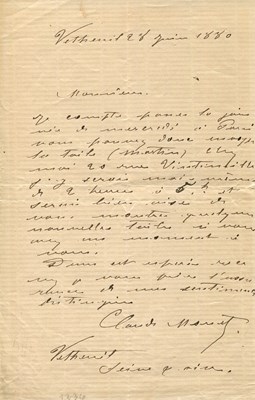 Vetheuil 28 juin 1880
Monsieur.
Je compte passer la jour
née de mercredi à Paris
vous pouvez donc
la toile (Martin) chez
moi 20 rue Vintimille
j'y serais moi même
de 2 heures à 5 h et
serais bien aise de
vous montrer quelques
nouvelles toiles si vous
avez un moment à
vous.
Dans cet espoir rece
vez je vous prie l'assu
rance de mes sentiments
distingués
Claude Monet.
Vetheuil
Seine & oise.